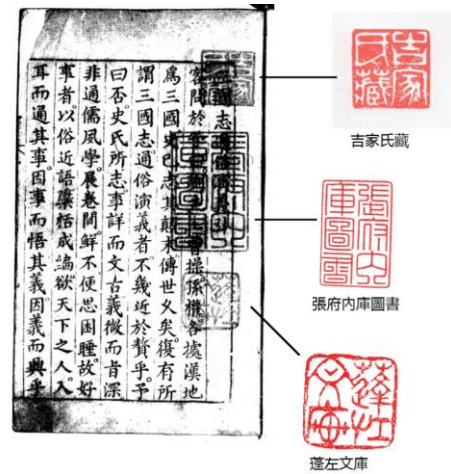 志通俗演義引
客問於
曹操孫權各據漢地
爲三國史已志其顛末傳世久矣復有所
謂三國志通俗演義者不幾近於贅乎予
曰否史氏所志事詳而文古義微而旨深
非通儒夙學展卷間鮮不便思困睡故好
事者以俗近語檃括成編欲天下之人入
耳而通其事因事而悟其義因義而興乎
吉家
氏藏
吉家氏藏
張府內
庫圖書
張府內庫圖書
蓬左
文庫
蓬左文庫